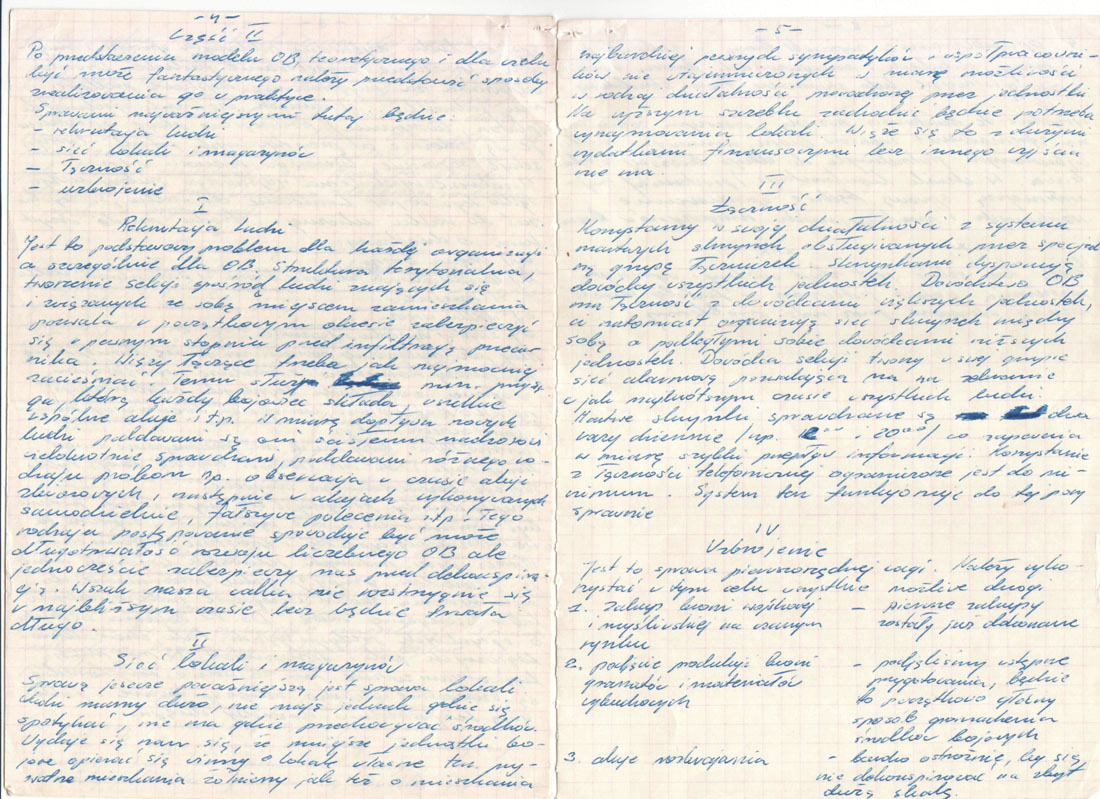 - 4 -
Część II
Po przedstawieniu modelu OB, teoretycznego i dla wielu
być może fantastycznego należy przedstawić sposoby
realizowania go w praktyce.
Sprawami najważniejszymi tutaj będzie:
- rekrutacja ludzi
- sieć lokali i magazynów
- Łączność
- uzbrojenie
I
Rekrutacja ludzi
Jest to podstawowy problem dla każdej organizacji
a szczególnie dla OB. Struktura terytorialna,
tworzenie sekcji spośród ludzi znających się
i związanych ze sobą miejscem zamieszkania
pozwala w początkowym okresie zabezpieczyć
się w pewnym stopniu przed infiltracją przeciw-
nika. Więzy łączące trzeba jak najmocniej
zacieśniać. Temu służy m.in. przysię-
ga, którą każdy bojowiec składa, wszelkie
wspólne akcje itp. W miarę dopływu nowych
ludzi poddawani są oni ścisłemu nadzorowi
wielokrotnie sprawdzani, poddawani różnego ro-
dzaju próbom np. obserwacja w czasie akcji
zbiorowych, następnie w akcjach wykonywanych
samodzielnie, fałszywe polecenia itp. Tego
rodzaju postępowanie spowoduje być może
długotrwałość rozwoju liczebnego OB ale
jednocześnie zabezpieczy nas przed dekonspira-
cją. Wszak nasza walka nie rozstrzygnie się
w najbliższym czasie lecz będzie trwała
długo.
II
Sieć lokali i magazynów
Sprawą jeszcze poważniejszą jest sprawa lokali
Ludzi mamy dużo, nie mają jednak gdzie się
spotykać, nie ma gdzie przechowywać środków.
Wydaje się nam się, że mniejsze jednostki bo-
jowe opierać się winny o lokale własne tzn. pry-
watne mieszkania żołnierzy jak też o mieszkania
- 5 -
najbardziej pewnych sympatyków i współpracowni-
ków nie wtajemniczonych w miarę możliwości
w rodzaj działalności prowadzonej przez jednostki
Na wyższym szczeblu zachodzić będzie potrzeba
wynajmowania lokali. Wiąże się to z dużymi
wydatkami finansowymi lecz innego wyjścia
nie ma.
III
Łączność
Korzystamy w swojej działalności z systemu
martwych skrzynek obsługiwanych przez specjal-
ną grupę łączniczek skrzynkami dysponują
dowódcy wszystkich jednostek. Dowództwo OB
ma łączność z dowódcami większych jednostek,
ci natomiast organizują sieć skrzynek między
sobą a podległymi sobie dowódcami niższych
jednostek. Dowódca sekcji tworzy w swej grupie
sieć alarmową pozwalającą na zebranie
w jak najkrótszym czasie wszystkich ludzi.
Martwe skrzynki sprawdzane są dwa
razy dziennie /np. i 20⁰⁰/ co zapewnia
w miarę szybki przepływ informacji. Korzystanie
z łączności telefonicznej ograniczone jest do mi-
nimum. System ten funkcjonuje do tej pory
sprawnie
IV
Uzbrojenie
Jest to sprawa pierwszorzędnej wagi. Należy wyko-
rzystać w tym celu wszystkie możliwe drogi.
1. Zakup broni wojskowej - pierwsze zakupy
i myśliwskiej na czarnym zostały już dokonane
rynku
2. podjęcie produkcji broni - podjęliśmy wstępne
granatów i materiałów przygotowania, będzie
wybuchowych to początkowo główny
sposób gromadzenia
środków bojowych
3. akcje rozbrajania - bardzo ostrożnie, by się
nie dekonspirować na zbyt
dużą skalę.